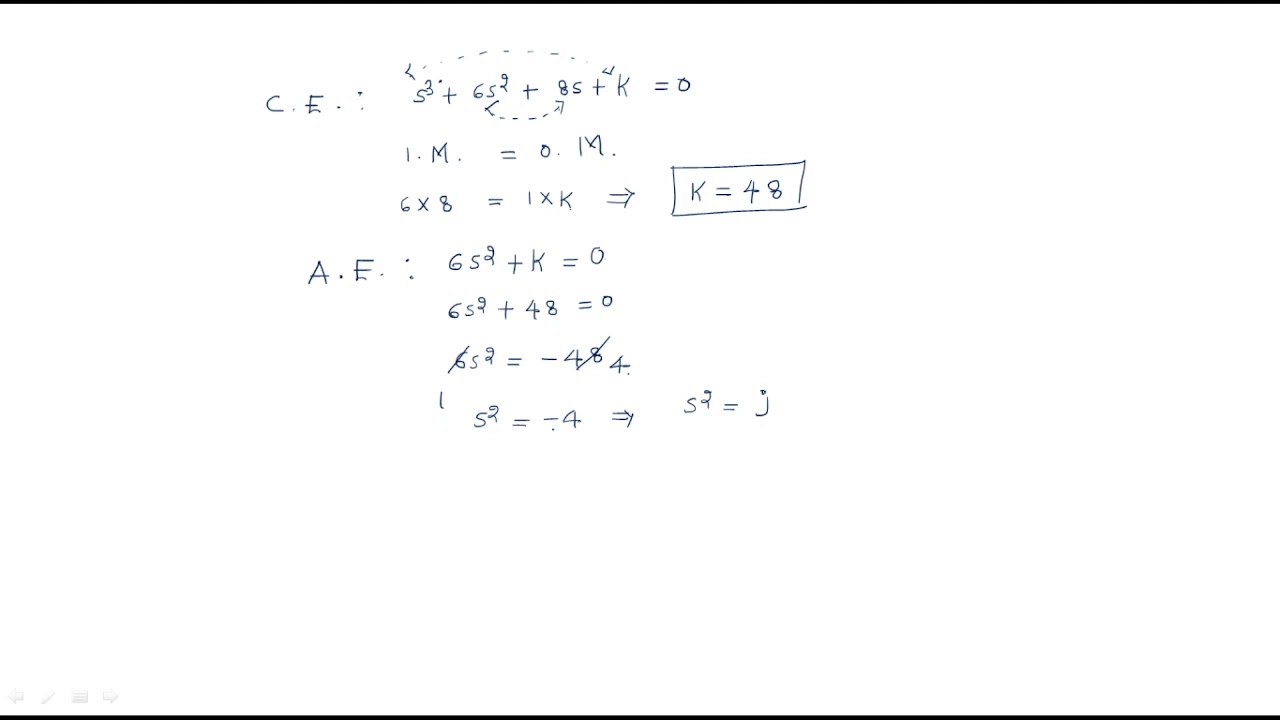 C.E. : s³ + 6s² + 8s + K = 0
I.M. = O.M.
6 × 8 = 1 × K ⇒ K = 48
A.E. : 6s² + K = 0
6s² + 48 = 0
6s² = -48 4
1
s² = -4 ⇒ s² = j